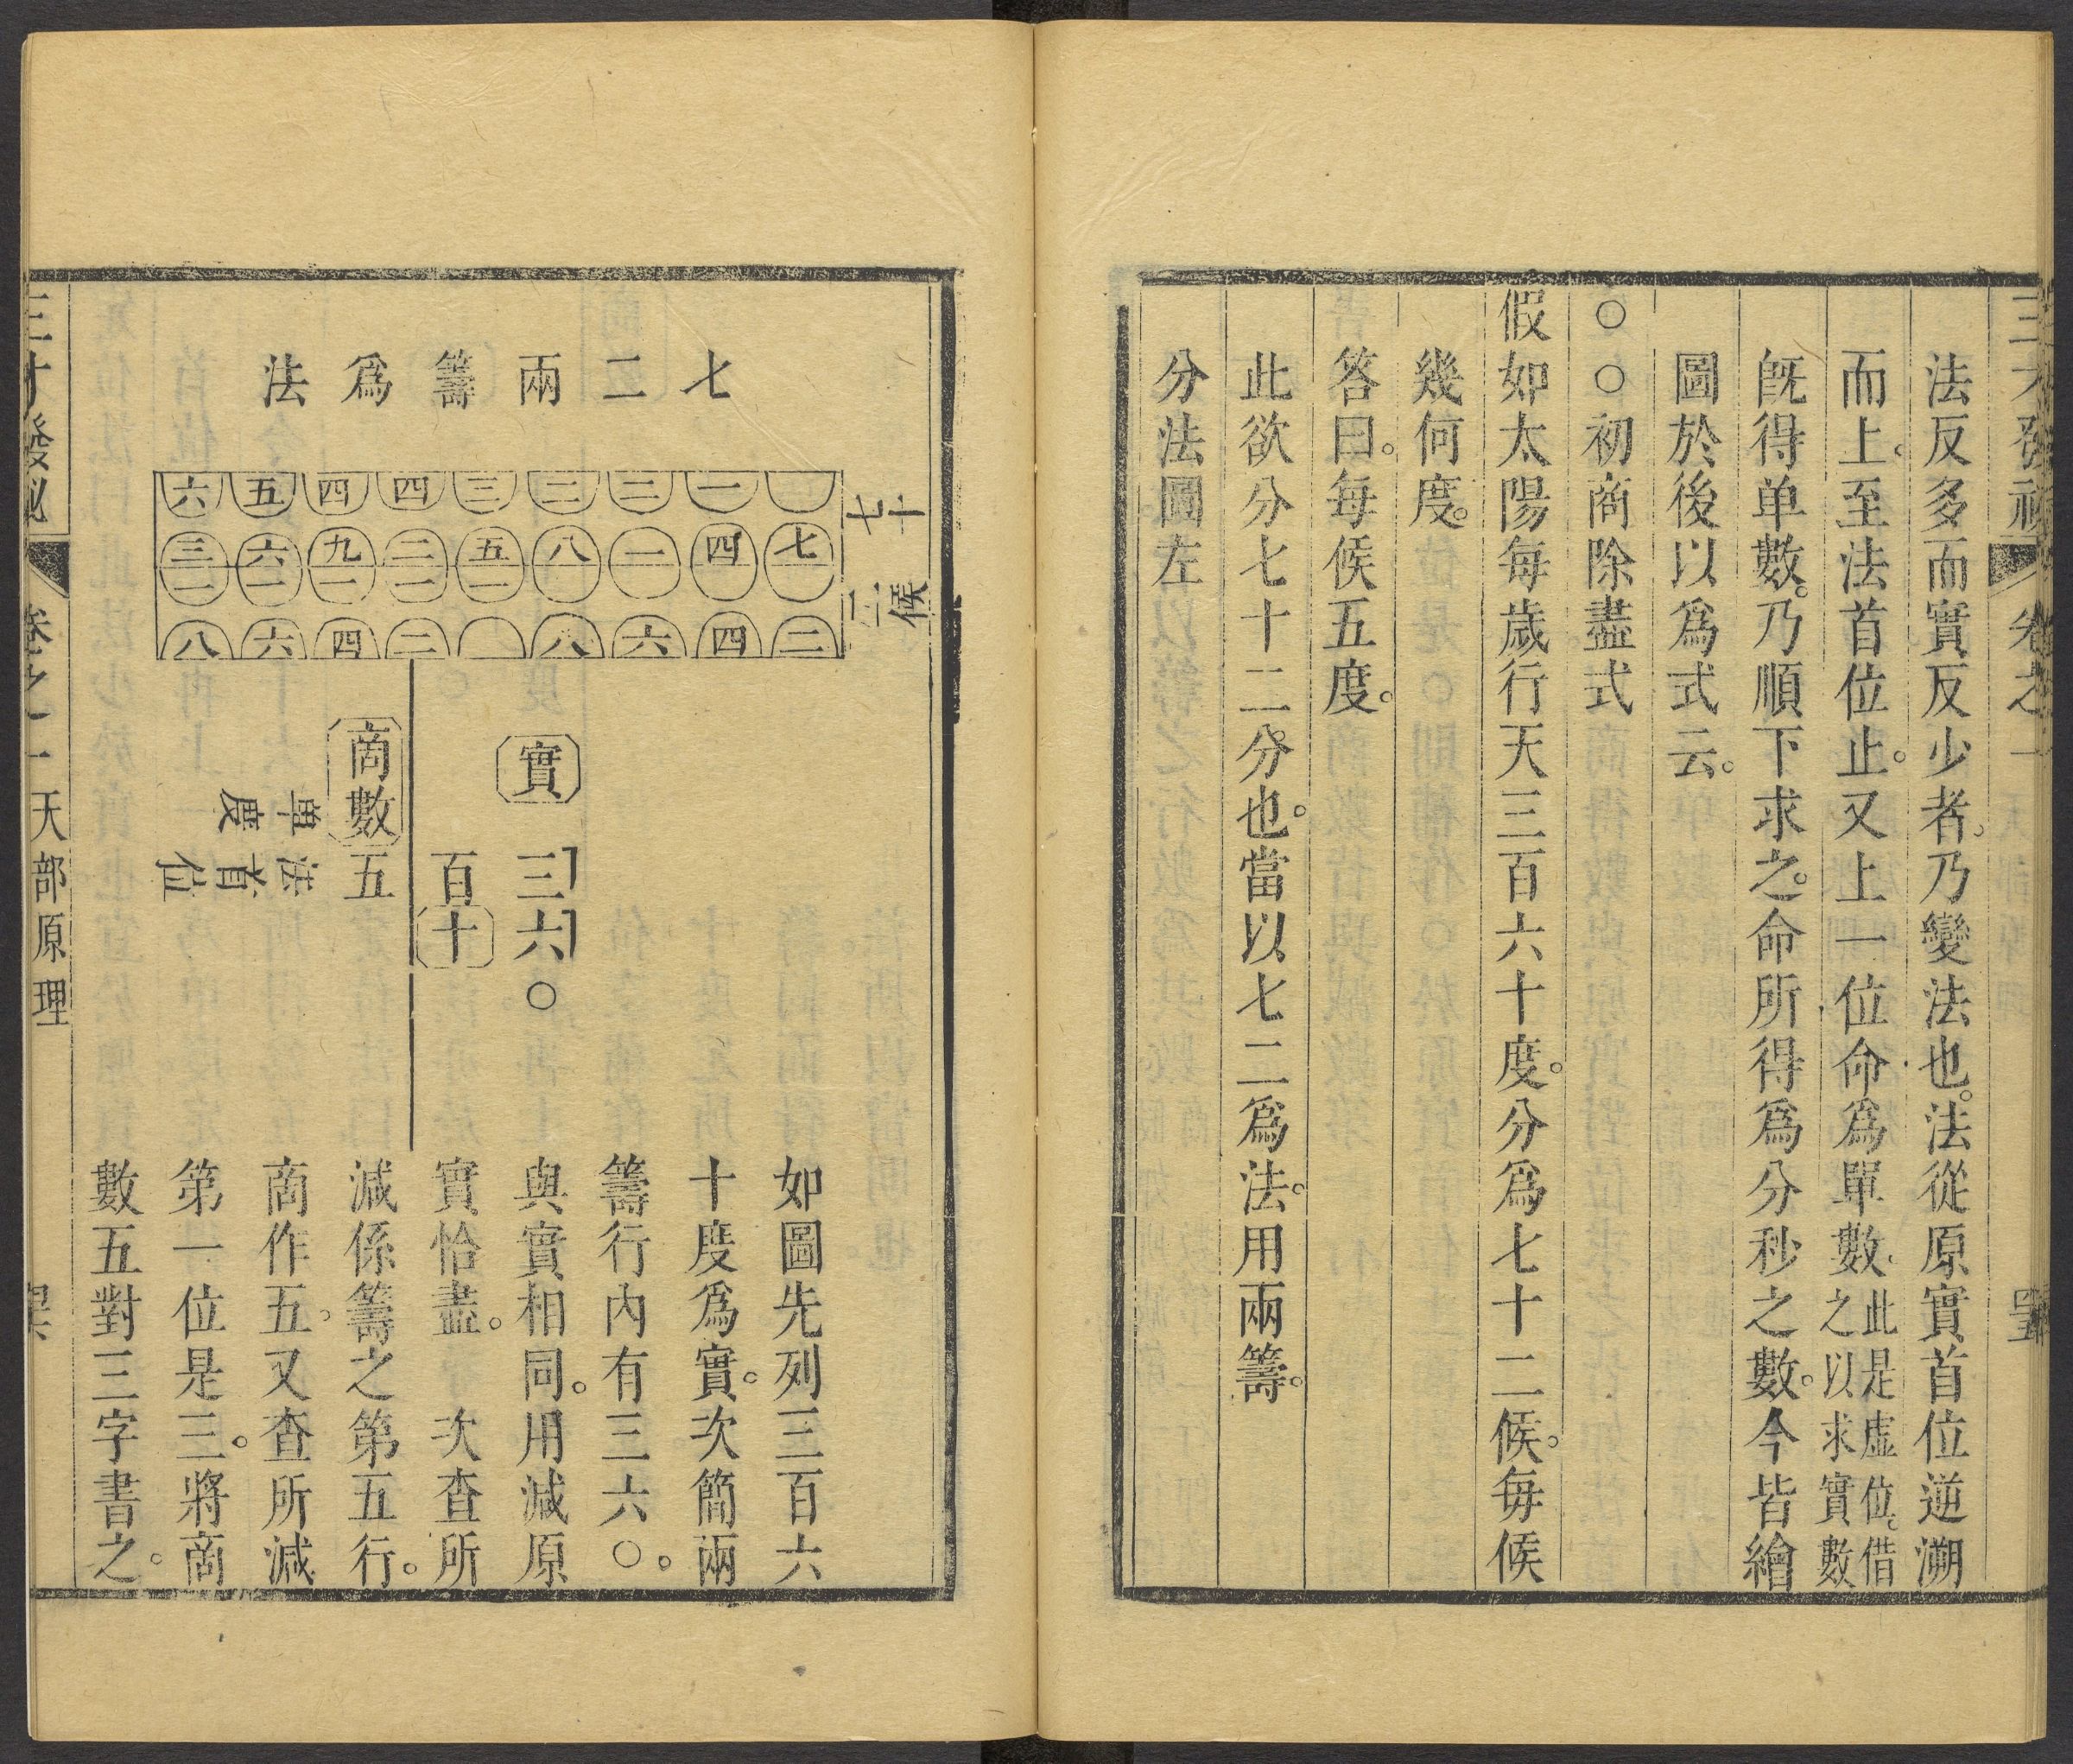 三才發祕
卷之一
法反多而實反少者乃變法也。法從原實首位逆溯
而上。至法首位止。又上一位命爲單數。此是虛位。借之以求實數
旣得单數。乃順下求之。命所得爲分秒之數。今皆繪
圖於後以爲式云。
○○初商除盡式
假如太陽每歲行天三百六十度。分爲七十二候。每候
幾何度。
答曰。每候五度。
此欲分七十二分也。當以七二爲法。用兩籌。
分法圖左
七二兩籌爲法
十候
七二
七二
一四四
二一六
二八八
三五一
四二一二
四九一四
五六一六
六三一八
實 三六○
百十
商數 五
單度
法首位
如圖先列三百六
十度爲實。次簡兩
籌行內有三六○。
與實相同。用減原
實恰盡。 次查所
減係籌之第五行。
商作五。又查所減
第一位是三。將商
數五對三字書之。
三才發祕
卷之一 天部原理